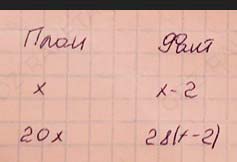 План Факт
x x-2
20x 28(x-2)